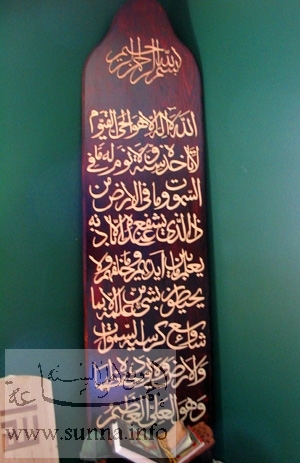 بسم الله الرحمن الرحيم
الله لا إله إلا هو الحي القيوم
لا تأخذه سنة ولا نوم له ما في
السموت وما في الأرض من
ذا الذي يشفع عنده إلا بإذنه
يعلم ما بين أيديهم وما خلفهم ولا
يحيطون بشيء من علمه إلا بما
شاء وسع كرسيه السموت
والأرض ولا يؤده حفظهما
وهو العلي العظيم
www.sunna.info